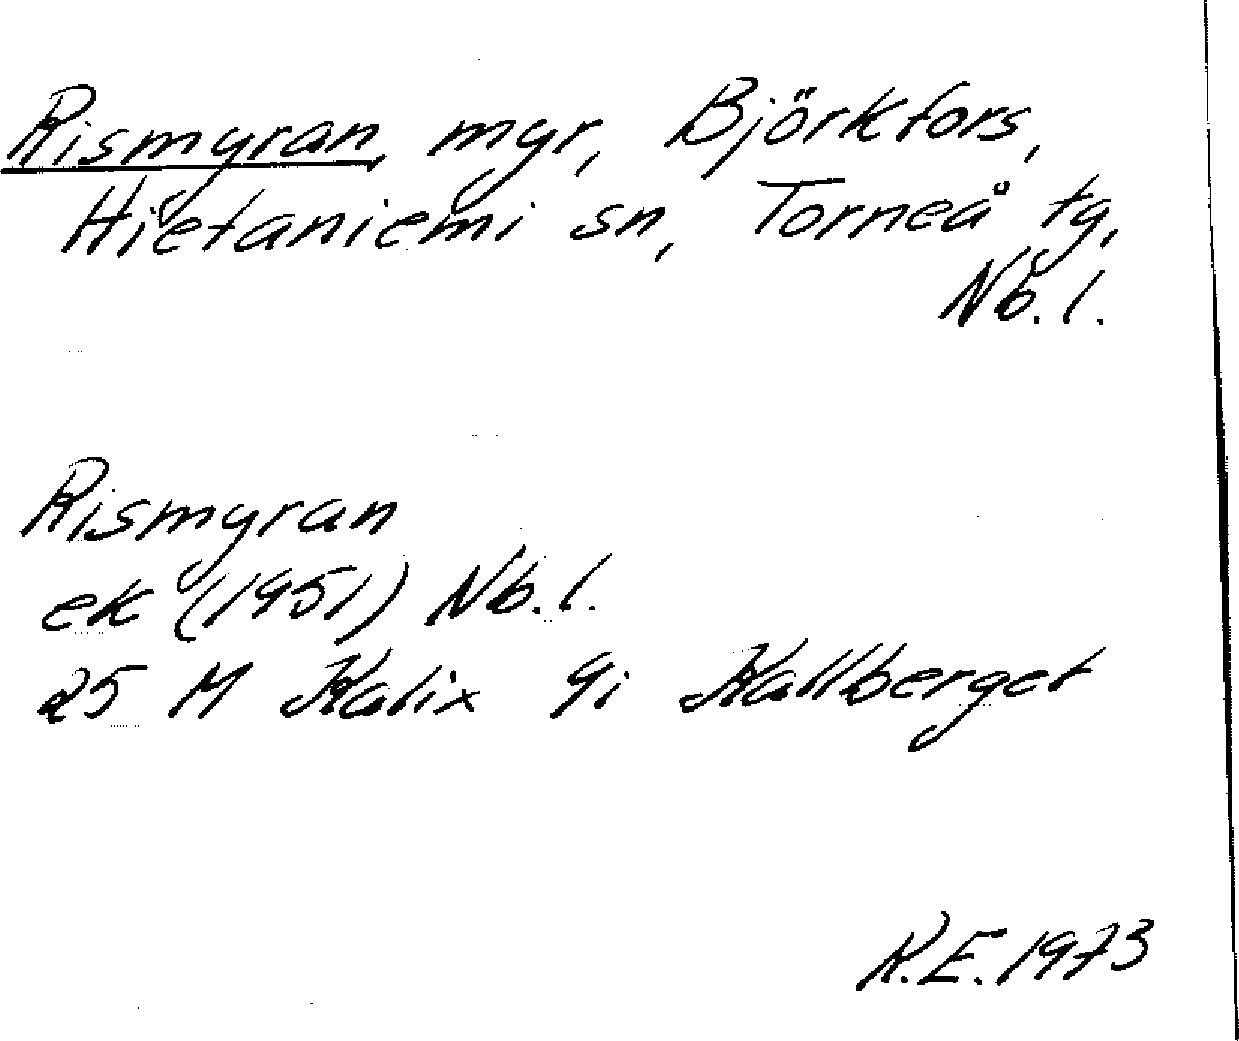 Rismyran, myr, Björkfors,
Hietaniemi sn, Torneå tg,
Nb. l.
Rismyran
ek (1951) Nb. l.
25 M Kalix 9i Kallberget
K.E. 1973